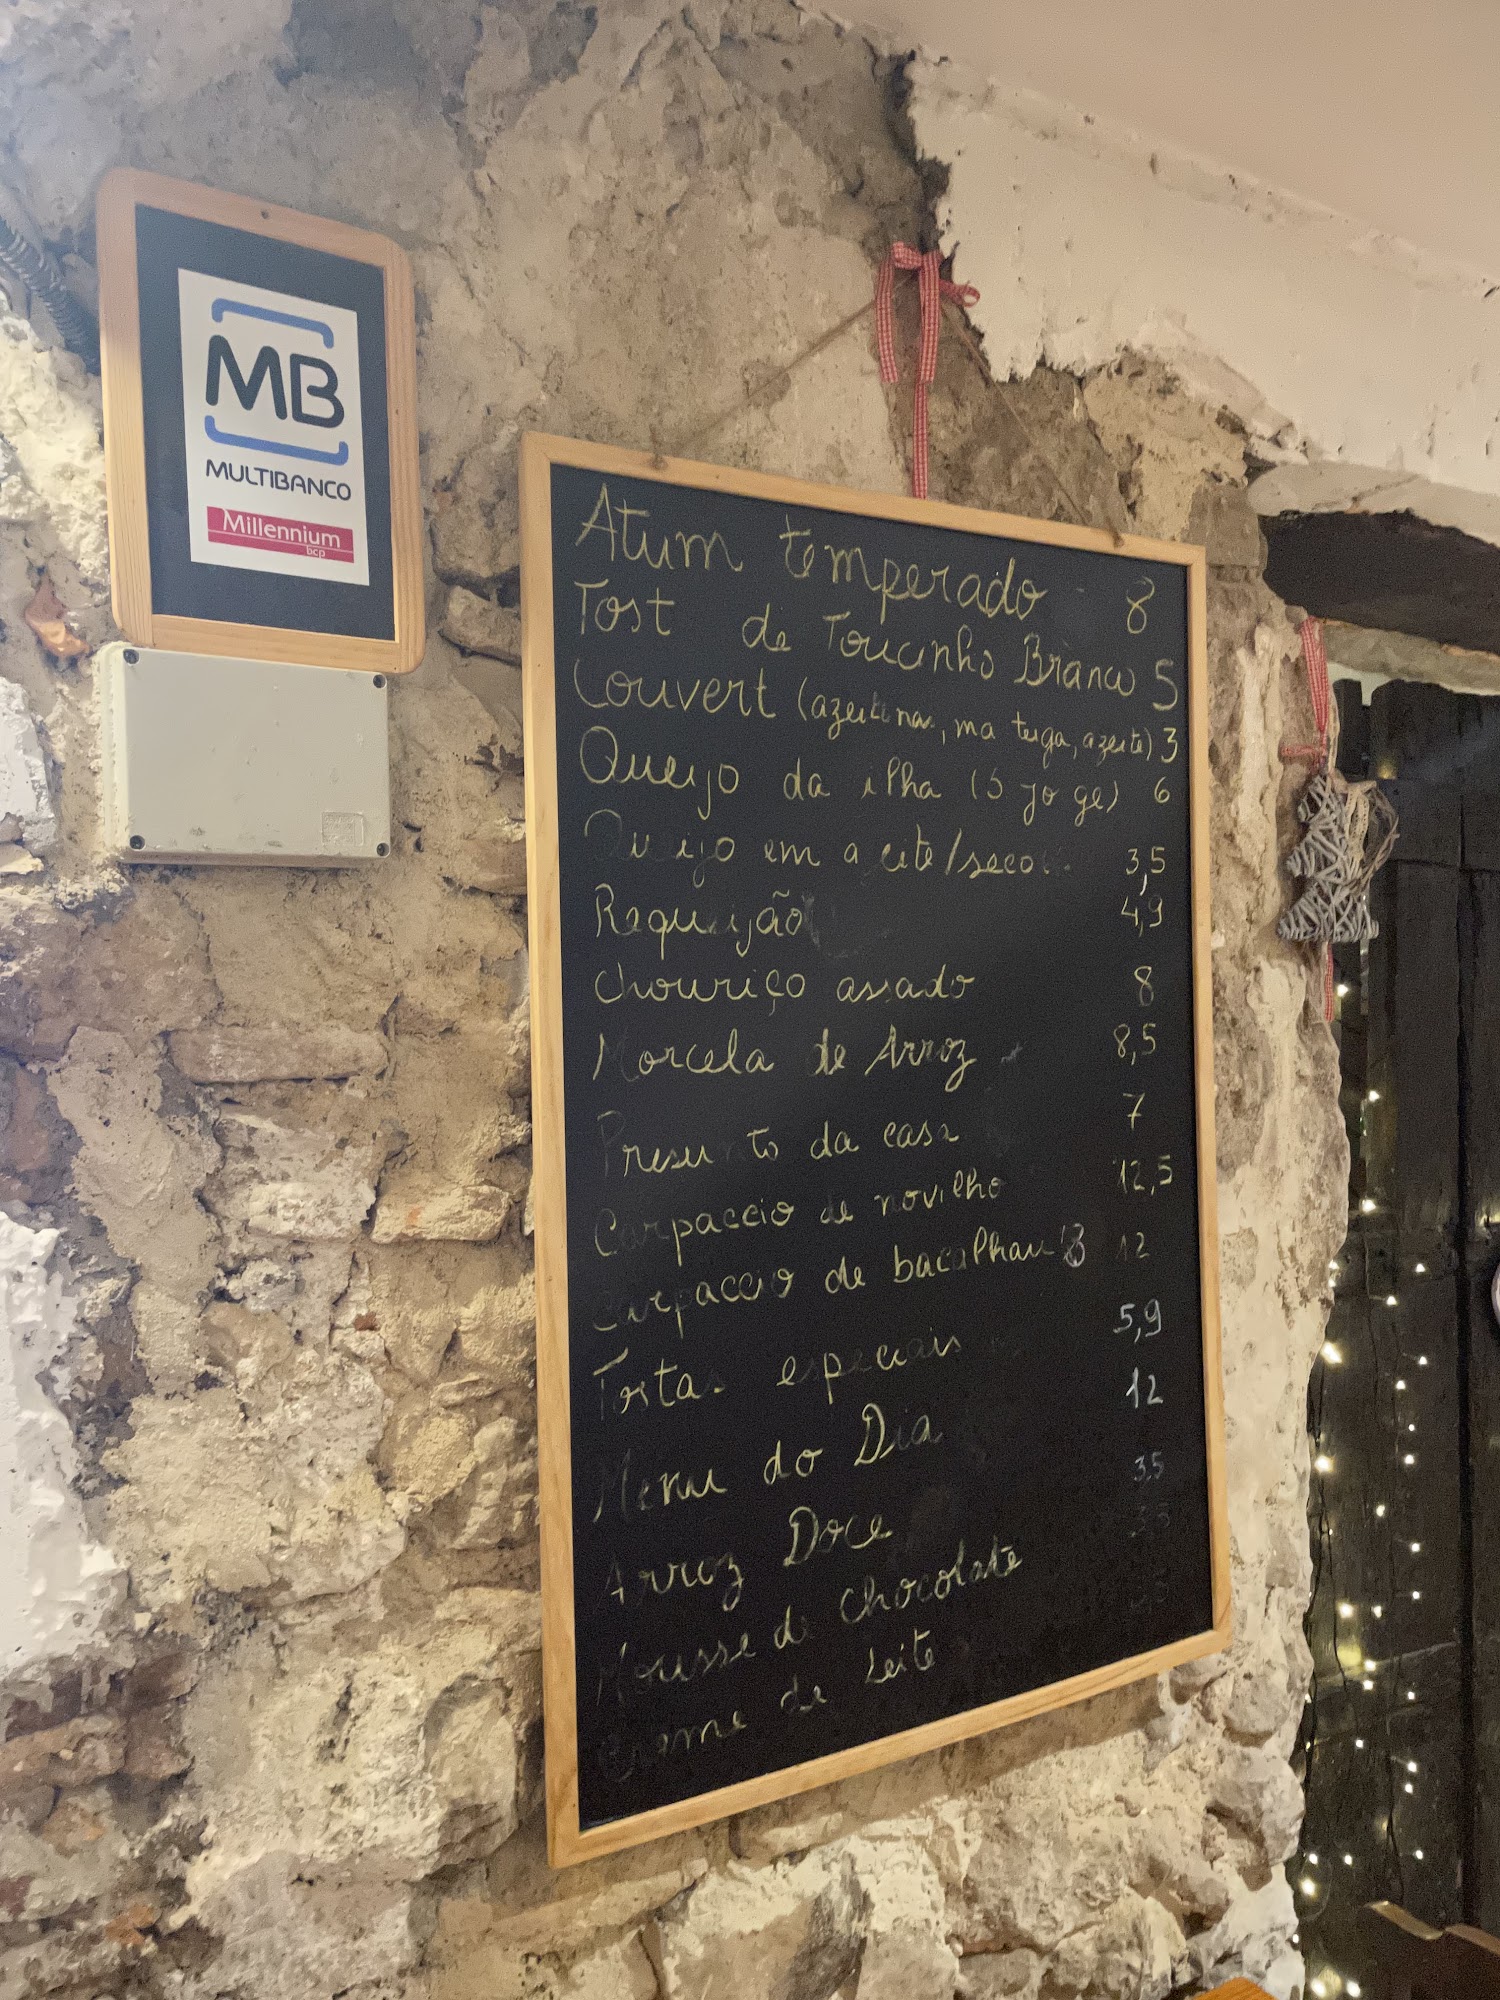 MB
MULTIBANCO
Millennium
bcp
Atum temperado 8
Tost de Toucinho Branco 5
Couvert (azeitonas, manteiga, azeite) 3
Queijo da ilha (S Jorge) 6
Queijo em azeite/seco 3,5
Requeijão 4,9
Chouriço assado 8
Morcela de Arroz 8,5
Presunto da casa 7
Carpaccio de novilho 12,5
Carpaccio de bacalhau 12
Tostas especiais 5,9
Menu do Dia 12
Arroz Doce 3,5
Mousse de chocolate 3,5
Creme de Leite